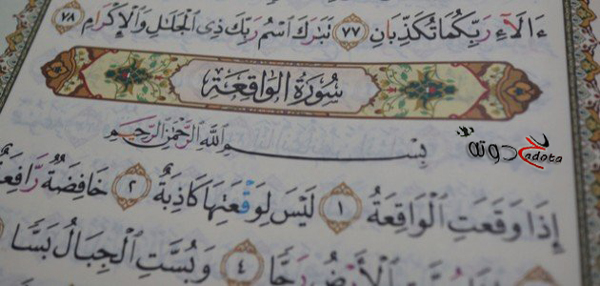 ءَالَآءِ رَبِّكُمَا تُكَذِّبَانِ ٧٧ تَبَٰرَكَ ٱسْمُ رَبِّكَ ذِى ٱلْجَلَٰلِ وَٱلْإِكْرَامِ ٧٨
سُورَةُ الْوَاقِعَةِ
بِسْمِ ٱللَّهِ ٱلرَّحْمَٰنِ ٱلرَّحِيمِ
دوته
ndota
إِذَا وَقَعَتِ ٱلْوَاقِعَةُ ١ لَيْسَ لِوَقْعَتِهَا كَاذِبَةٌ ٢ خَافِضَةٌ رَّافِعَةٌ
ٱلْأَرْضُ رَجًّا ٤ وَبُسَّتِ ٱلْجِبَالُ بَسًّا